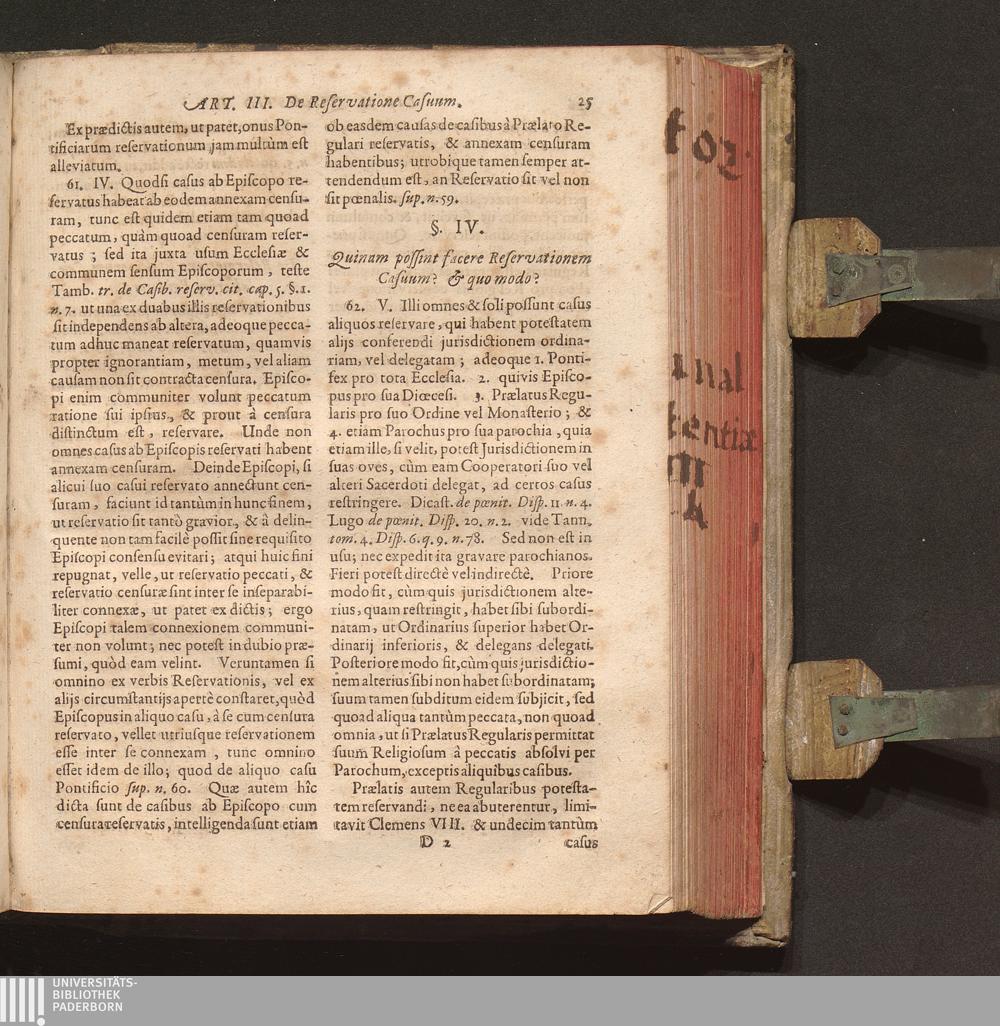 ART. III. De Reſervatione Caſuum. 25
Ex prædictis autem, ut patet, onus Pon-
tificiarum reſervationum jam multùm eſt
alleviatum.
61. IV. Quodſi caſus ab Epiſcopo re-
ſervatus habeat ab eodem annexam cenſu-
ram, tunc eſt quidem etiam tam quoad
peccatum, quàm quoad cenſuram reſer-
vatus ; ſed ita juxta uſum Eccleſiæ &
communem ſenſum Epiſcoporum, teſte
Tamb. tr. de Caſib. reſerv. cit. cap. 5. §. 1.
n. 7. ut una ex duabus illis reſervationibus
ſit independens ab altera, adeoque pecca-
tum adhuc maneat reſervatum, quamvis
propter ignorantiam, metum, vel aliam
cauſam non ſit contracta cenſura. Epiſco-
pi enim communiter volunt peccatum
ratione ſui ipſius, & prout à cenſura
diſtinctum eſt, reſervare. Unde non
omnes caſus ab Epiſcopis reſervati habent
annexam cenſuram. Deinde Epiſcopi, ſi
alicui ſuo caſui reſervato annectunt cen-
ſuram, faciunt id tantùm in hunc finem,
ut reſervatio ſit tantò gravior, & à delin-
quente non tam facilè poſſit ſine requiſito
Epiſcopi conſenſu evitari ; atqui huic fini
repugnat, velle, ut reſervatio peccati, &
reſervatio cenſuræ ſint inter ſe inſeparabi-
liter connexæ, ut patet ex dictis ; ergo
Epiſcopi talem connexionem communi-
ter non volunt ; nec poteſt in dubio præ-
ſumi, quòd eam velint. Veruntamen ſi
omnino ex verbis Reſervationis, vel ex
alijs circumſtantijs apertè conſtaret, quòd
Epiſcopus in aliquo caſu, à ſe cum cenſura
reſervato, vellet utriuſque reſervationem
eſſe inter ſe connexam , tunc omnino
eſſet idem de illo; quod de aliquo caſu
Pontificio ſup. n. 60. Quæ autem hîc
dicta ſunt de caſibus ab Epiſcopo cum
cenſura reſervatis, intelligenda ſunt etiam
ob eaſdem cauſas de caſibus à Prælato Re-
gulari reſervatis, & annexam cenſuram
habentibus; utrobique tamen ſemper at-
tendendum eſt, an Reſervatio ſit vel non
ſit pœnalis. ſup. n. 59.
§. IV.
Quinam poſſint facere Reſervationem
Caſuum? & quo modo?
62. V. Illi omnes & ſoli poſſunt caſus
aliquos reſervare, qui habent poteſtatem
alijs conferendi jurisdictionem ordina-
riam, vel delegatam ; adeoque 1. Ponti-
fex pro tota Eccleſia. 2. quivis Epiſco-
pus pro ſua Diœceſi. 3. Prælatus Regu-
laris pro ſuo Ordine vel Monaſterio ; &
4. etiam Parochus pro ſua parochia, quia
etiam ille, ſi velit, poteſt Jurisdictionem in
ſuas oves, cùm eam Cooperatori ſuo vel
alteri Sacerdoti delegat, ad certos caſus
reſtringere. Dicaſt. de pœnit. Diſp. 11. n. 4.
Lugo de pœnit. Diſp. 20. n. 2. vide Tann.
tom. 4. Diſp. 6. q. 9. n. 78. Sed non eſt in
uſu; nec expedit ita gravare parochianos.
Fieri poteſt directè vel indirectè. Priore
modo fit, cùm quis jurisdictionem alte-
rius, quam reſtringit, habet ſibi ſubordi-
natam, ut Ordinarius ſuperior habet Or-
dinarij inferioris, & delegans delegati.
Poſteriore modo fit, cùm quis jurisdictio-
nem alterius ſibi non habet ſubordinatam;
ſuum tamen ſubditum eidem ſubjicit, ſed
quoad aliqua tantùm peccata, non quoad
omnia, ut ſi Prælatus Regularis permittat
ſuum Religioſum à peccatis abſolvi per
Parochum, exceptis aliquibus caſibus.
Prælatis autem Regularibus poteſta-
tem reſervandi, ne ea abuterentur, limi-
tavit Clemens VIII. & undecim tantùm
D 2 caſus
UNIVERSITÄTS-
BIBLIOTHEK
PADERBORN